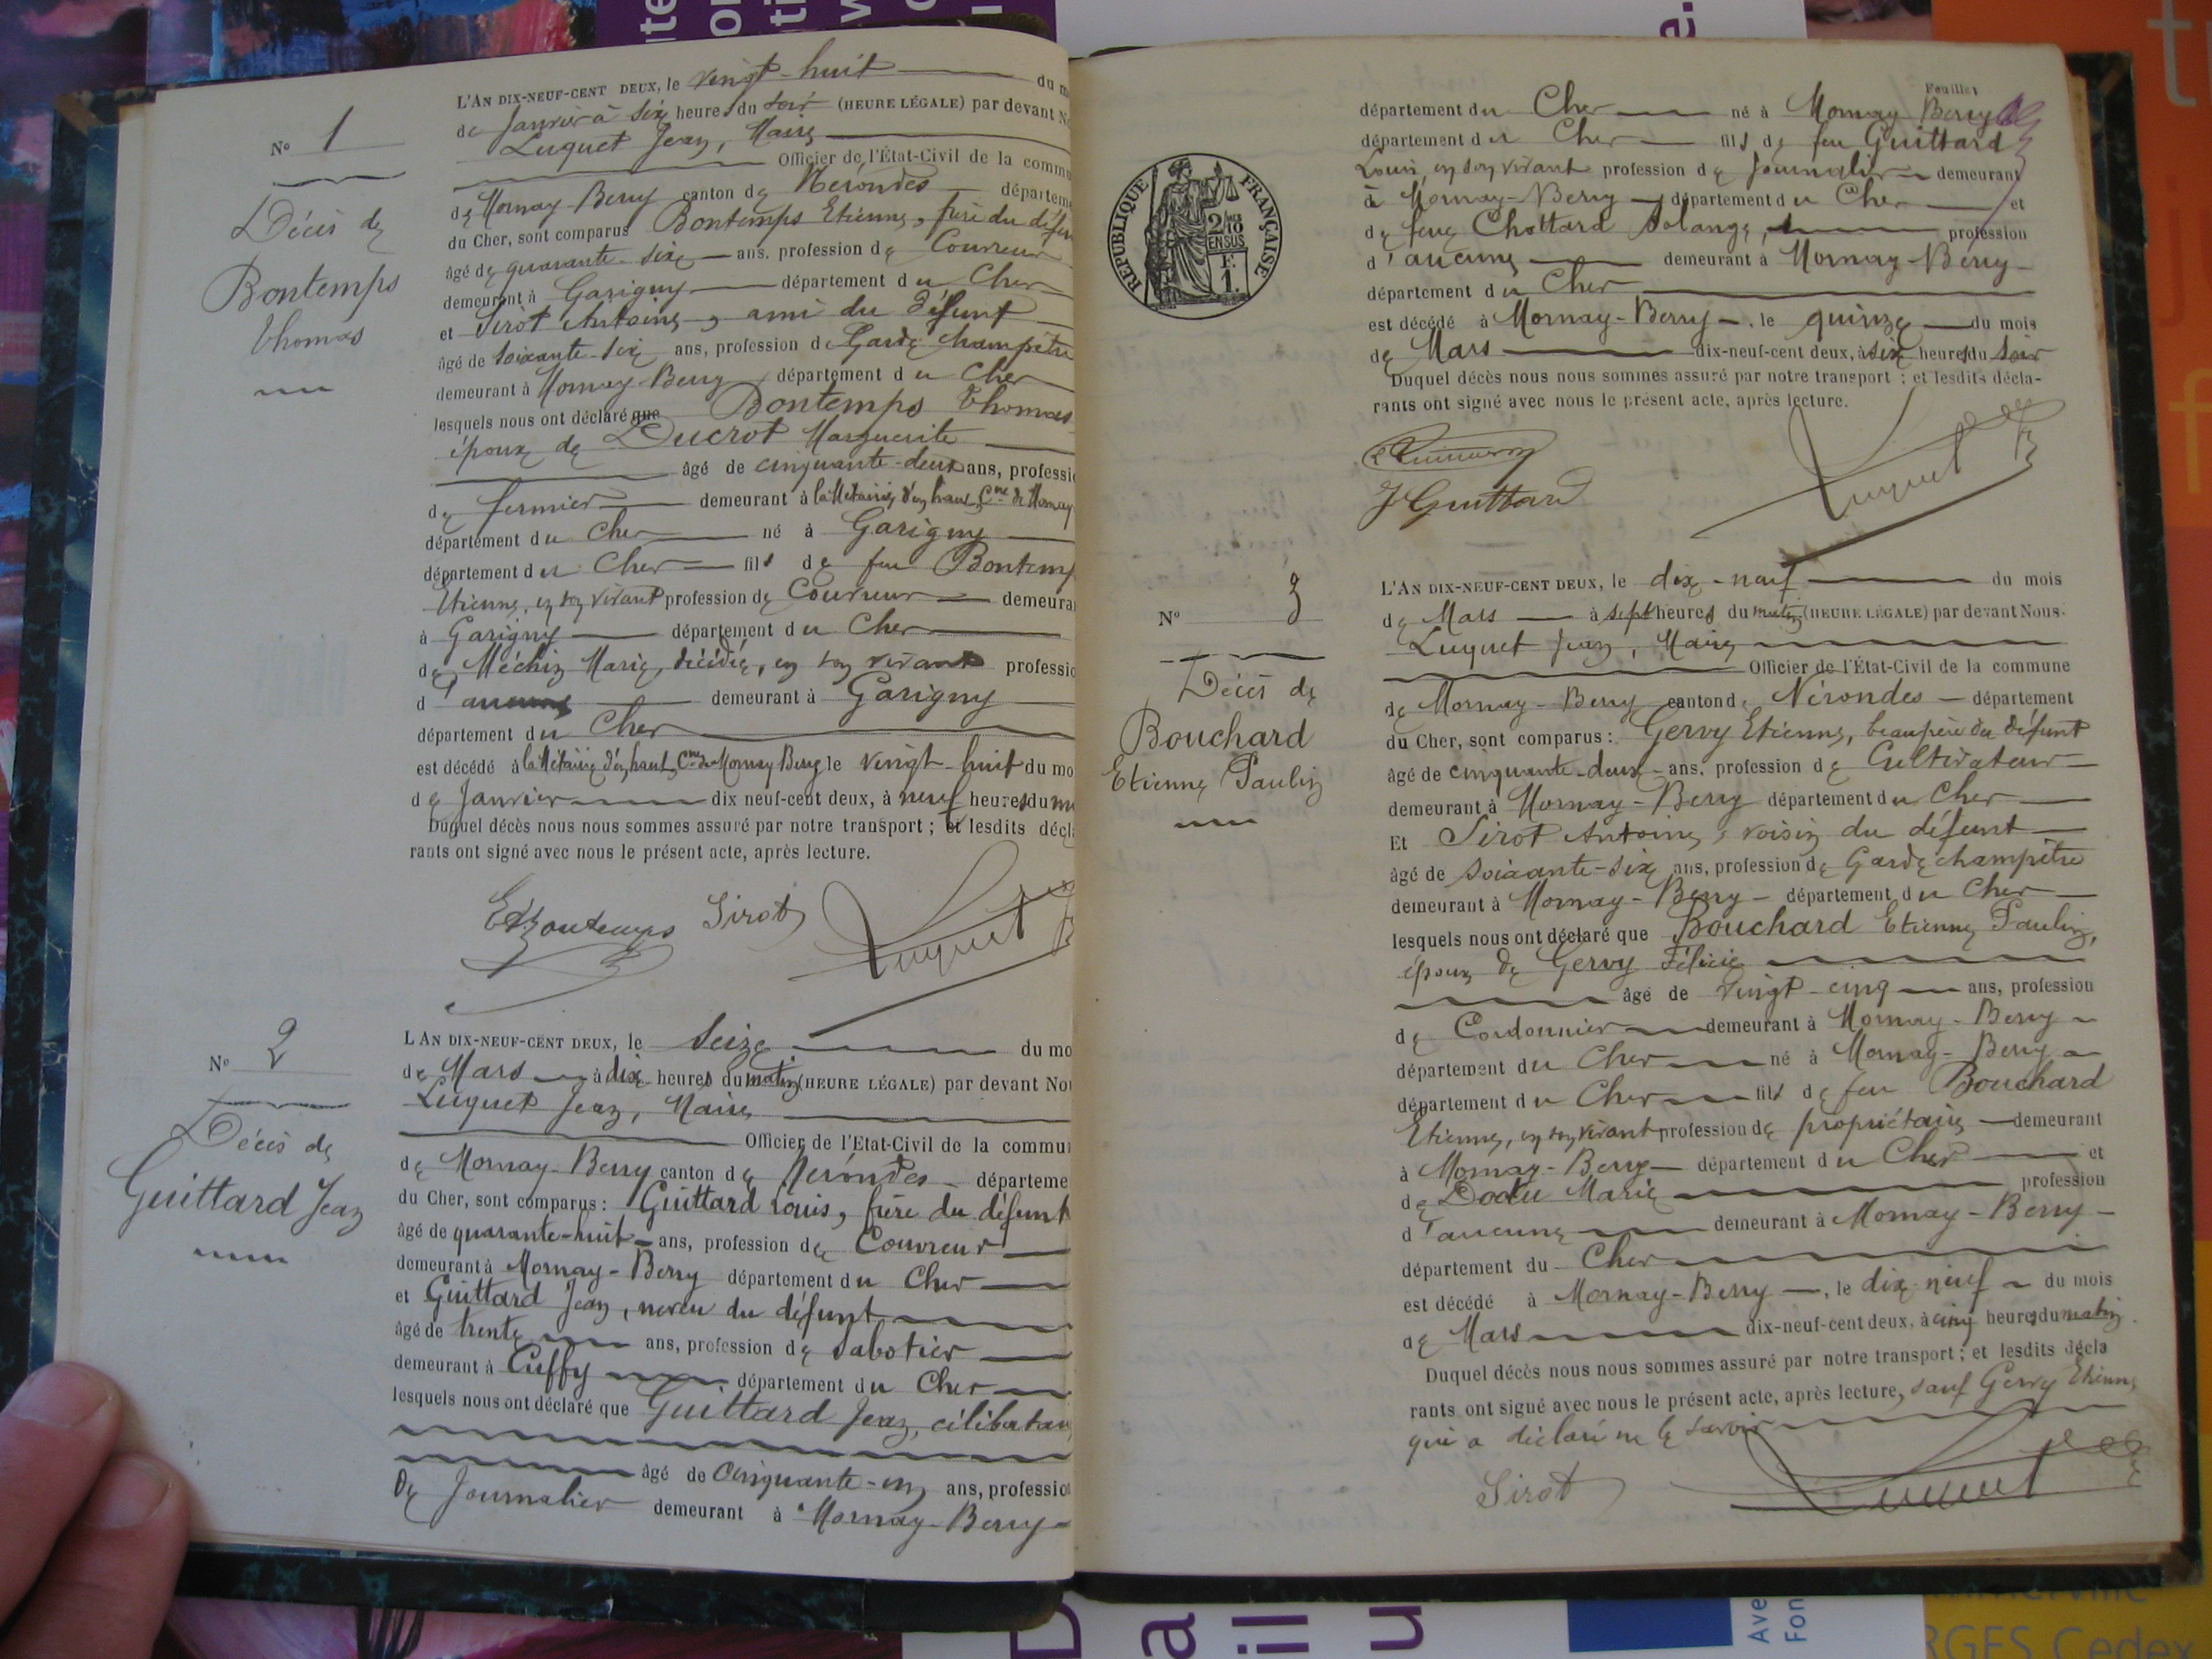 N° 1
Décès de
Bontemps
Thomas
L'AN DIX-NEUF-CENT DEUX, le vingt-huit du
de Janvier à six heures du soir (HEURE LÉGALE) par devant
Luquet Jean, Maire
Officier de l'État-Civil de la commu
de Mornay-Berry canton de Nérondes départem
du Cher, sont comparus Bontemps Etienne, frère du défun
âgé de quarante-six ans, profession de Couvreur
demeurant à Garigny département du Cher
et Sirot Antoine, ami du défunt
âgé de soixante-six ans, profession de Garde champêtre
demeurant à Mornay-Berry département du Cher
lesquels nous ont déclaré que Bontemps Thomas
époux de Ducrot Marguerite
âgé de cinquante-deux ans, professi
de fermier demeurant à la Métairie d'en haut Cne de Mornay
département du Cher né à Garigny
département du Cher fils de feu Bontemp
Etienne, en son vivant profession de Couvreur demeura
à Garigny département du Cher
de Méchin Marie, décédée, en son vivant professio
d'aucune demeurant à Garigny
département du Cher
est décédé à la Métairie d'en haut Cne de Mornay Berry le vingt-huit du mo
de Janvier dix neuf-cent deux, à neuf heures du m
Duquel décès nous nous sommes assuré par notre transport ; et lesdits décl
rants ont signé avec nous le présent acte, après lecture.
Et Bontemps Sirot Luquet
N° 2
Décès de
Guittard Jean
L'AN DIX-NEUF-CENT DEUX, le seize du mo
de Mars à dix heures du matin (HEURE LÉGALE) par devant Nou
Luquet Jean, Maire
Officier de l'Etat-Civil de la commu
de Mornay-Berry canton de Nérondes départeme
du Cher, sont comparus : Guittard Louis, frère du défunt
âgé de quarante-huit ans, profession de Couvreur
demeurant à Mornay-Berry département du Cher
et Guittard Jean, neveu du défunt
âgé de trente ans, profession de Sabotier
demeurant à Cuffy département du Cher
lesquels nous ont déclaré que Guittard Jean, célibatai
âgé de Cinquante-un ans, profession
de Journalier demeurant à Mornay-Berry
Feuillet
département du Cher né à Mornay Berry
département du Cher fils de feu Guittard
Louis, en son vivant profession de Journalier demeurant
à Mornay-Berry département du Cher et
de feue Chottard Solange, profession
d'aucune demeurant à Mornay-Berry
département du Cher
est décédé à Mornay-Berry, le quinze du mois
de Mars dix-neuf-cent deux, à six heures du soir
Duquel décès nous nous sommes assuré par notre transport ; et lesdits décla-
rants ont signé avec nous le présent acte, après lecture.
J Guittard Luquet
REPUBLIQUE FRANÇAISE
2/10 EN SUS
F. 1.
N° 3
Décès de
Bouchard
Etienne Paulin
L'AN DIX-NEUF-CENT DEUX, le dix-neuf du mois
de Mars à sept heures du matin (HEURE LÉGALE) par devant Nous.
Luquet Jean, Maire
Officier de l'État-Civil de la commune
de Mornay-Berry canton de Nérondes département
du Cher, sont comparus : Gervy Etienne, beau père du défunt
âgé de cinquante-deux ans, profession de Cultivateur
demeurant à Mornay-Berry département du Cher
Et Sirot Antoine, voisin du défunt
âgé de soixante-six ans, profession de Garde champêtre
demeurant à Mornay-Berry département du Cher
lesquels nous ont déclaré que Bouchard Etienne Paulin,
époux de Gervy Félicie
âgé de vingt-cinq ans, profession
de Cordonnier demeurant à Mornay-Berry
département du Cher né à Mornay-Berry
département du Cher fils de feu Bouchard
Etienne, en son vivant profession de propriétaire demeurant
à Mornay-Berry département du Cher et
de Dodu Marie profession
d'aucune demeurant à Mornay-Berry
département du Cher
est décédé à Mornay-Berry, le dix-neuf du mois
de Mars dix-neuf-cent deux, à cinq heures du matin.
Duquel décès nous nous sommes assuré par notre transport ; et lesdits décla
rants ont signé avec nous le présent acte, après lecture, sauf Gervy Etienne
qui a déclaré ne le savoir
Sirot Luquet